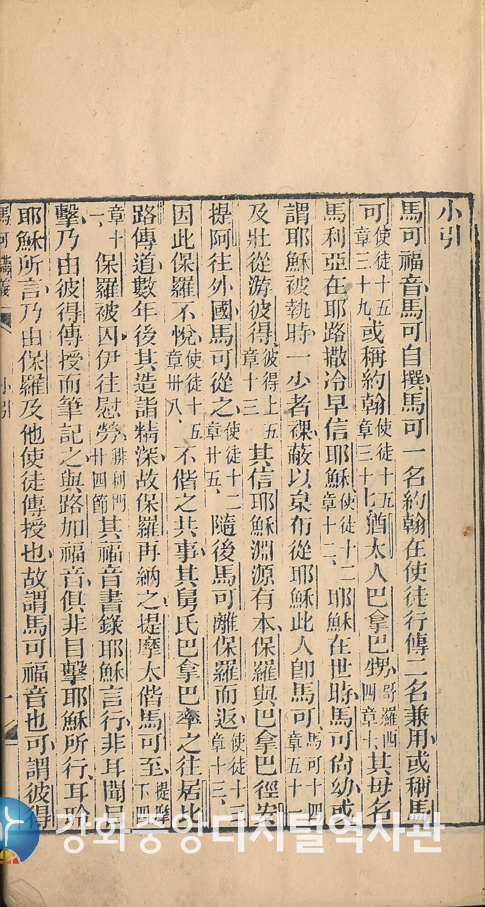 小引
馬可福音馬可自撰馬可一名約翰在使徒行傳二名兼用或稱馬
可使徒十五章三十九或稱約翰使徒十五章三十七猶太人巴拿巴甥哥羅西四章十其母名
馬利亞在耶路撒冷早信耶穌使徒十二章十二耶穌在世時馬可尚幼或
謂耶穌被執時一少者裸蔽以枲布從耶穌此人卽馬可馬可十四章五十一
及壯從游彼得彼得上五章十三其信耶穌淵源有本保羅與巴拿巴徑安
提阿往外國馬可從之使徒十二章廿五隨後馬可離保羅而返使徒十三章十三
因此保羅不悅使徒十五章卅八不偕之共事其舅氏巴拿巴率之往居比
路傳道數年後其造詣精深故保羅再納之提摩太偕馬可至提摩下四
章十一保羅被囚伊往慰勞腓利門廿四節其福音書錄耶穌言行非耳聞目
擊乃由彼得傳授而筆記之與路加福音俱非目擊耶穌所行耳聆
耶穌所言乃由保羅及他使徒傳授也故謂馬可福音也可謂彼得
馬可講義 小引 一
강화중앙디지털역사관